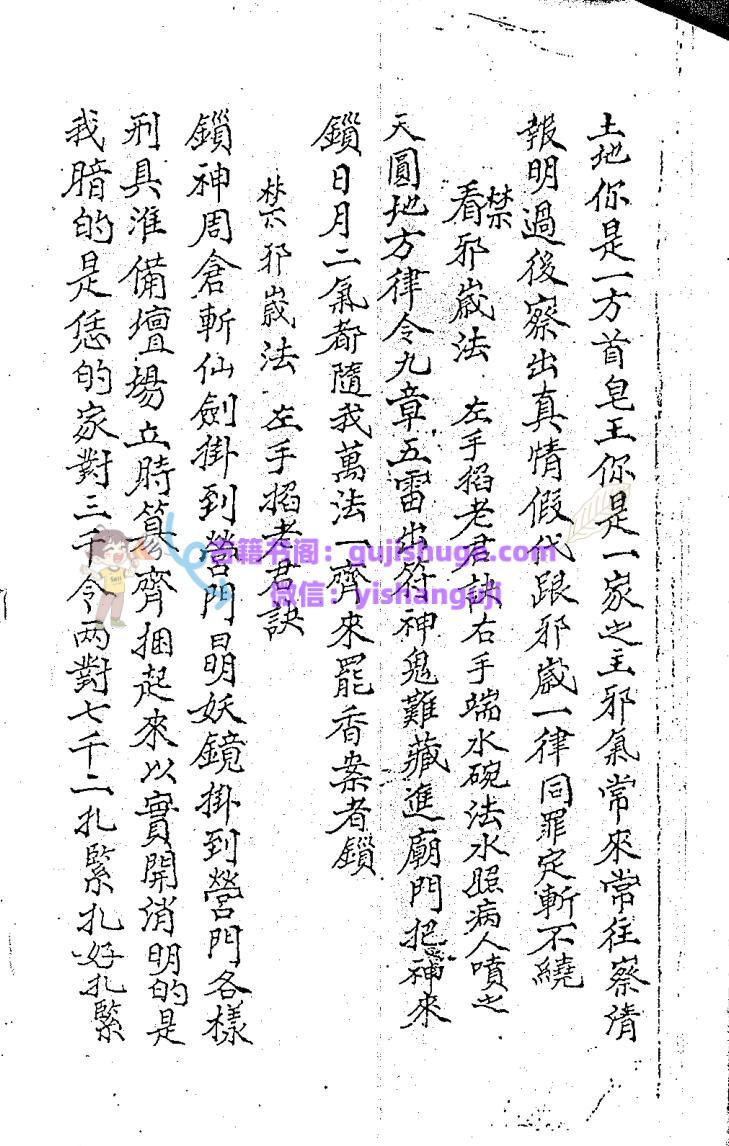 土地你是一方首皂王你是一家之主邪氣常來常往察清
報明過後察出真情假代跟邪崴一律同罪定斬不繞
禁
看邪崴法 左手掐老君訣右手端水碗法水照病人噴之
天圓地方律令九章五雷出符神鬼難藏進廟門把神來
鎖日月二氣都隨我萬法一齊來罷香案者鎖
禁邪崴法 左手掐老君訣
鎖神周倉斬仙劍掛到營門昌妖鏡掛到營門各樣
刑具准備壇場立時筧齊捆起來以實開消明的是
我暗的是恁的家對三千令两對七千二扎緊扎好扎緊
古籍书阁：gujishuge.com
微信：yishanguji